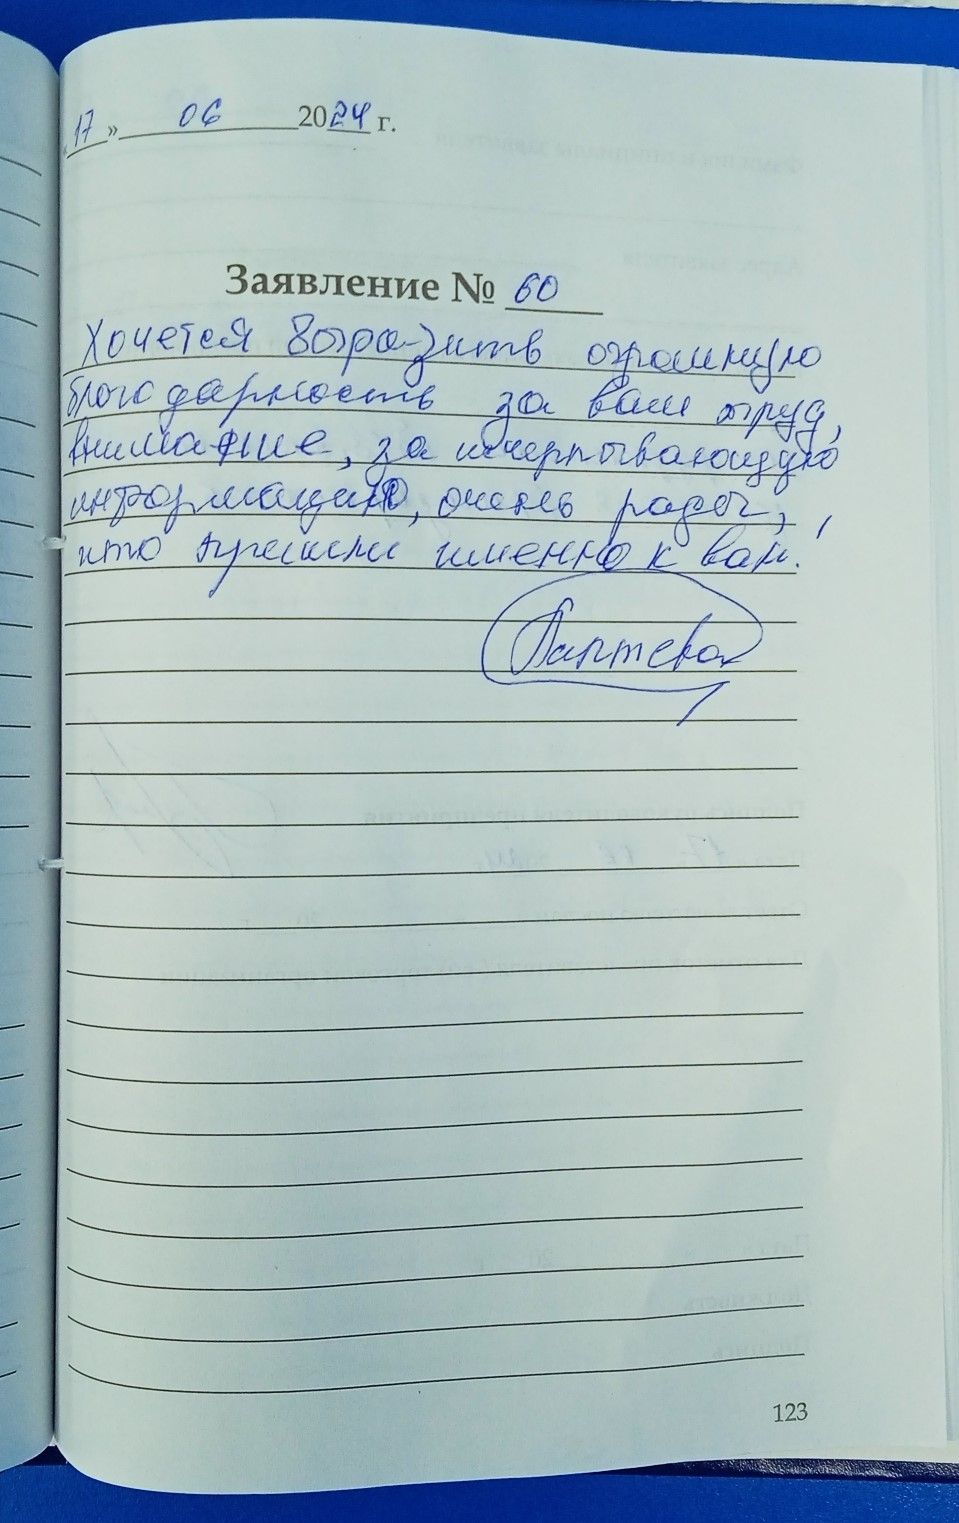 «17» 06 2024 г.
Заявление № 60
Хочется выразить огромную
благодарность за ваш труд,
внимание, за исчерпывающую
информацию, очень рады,
что пришли именно к вам.
Лаптева
123